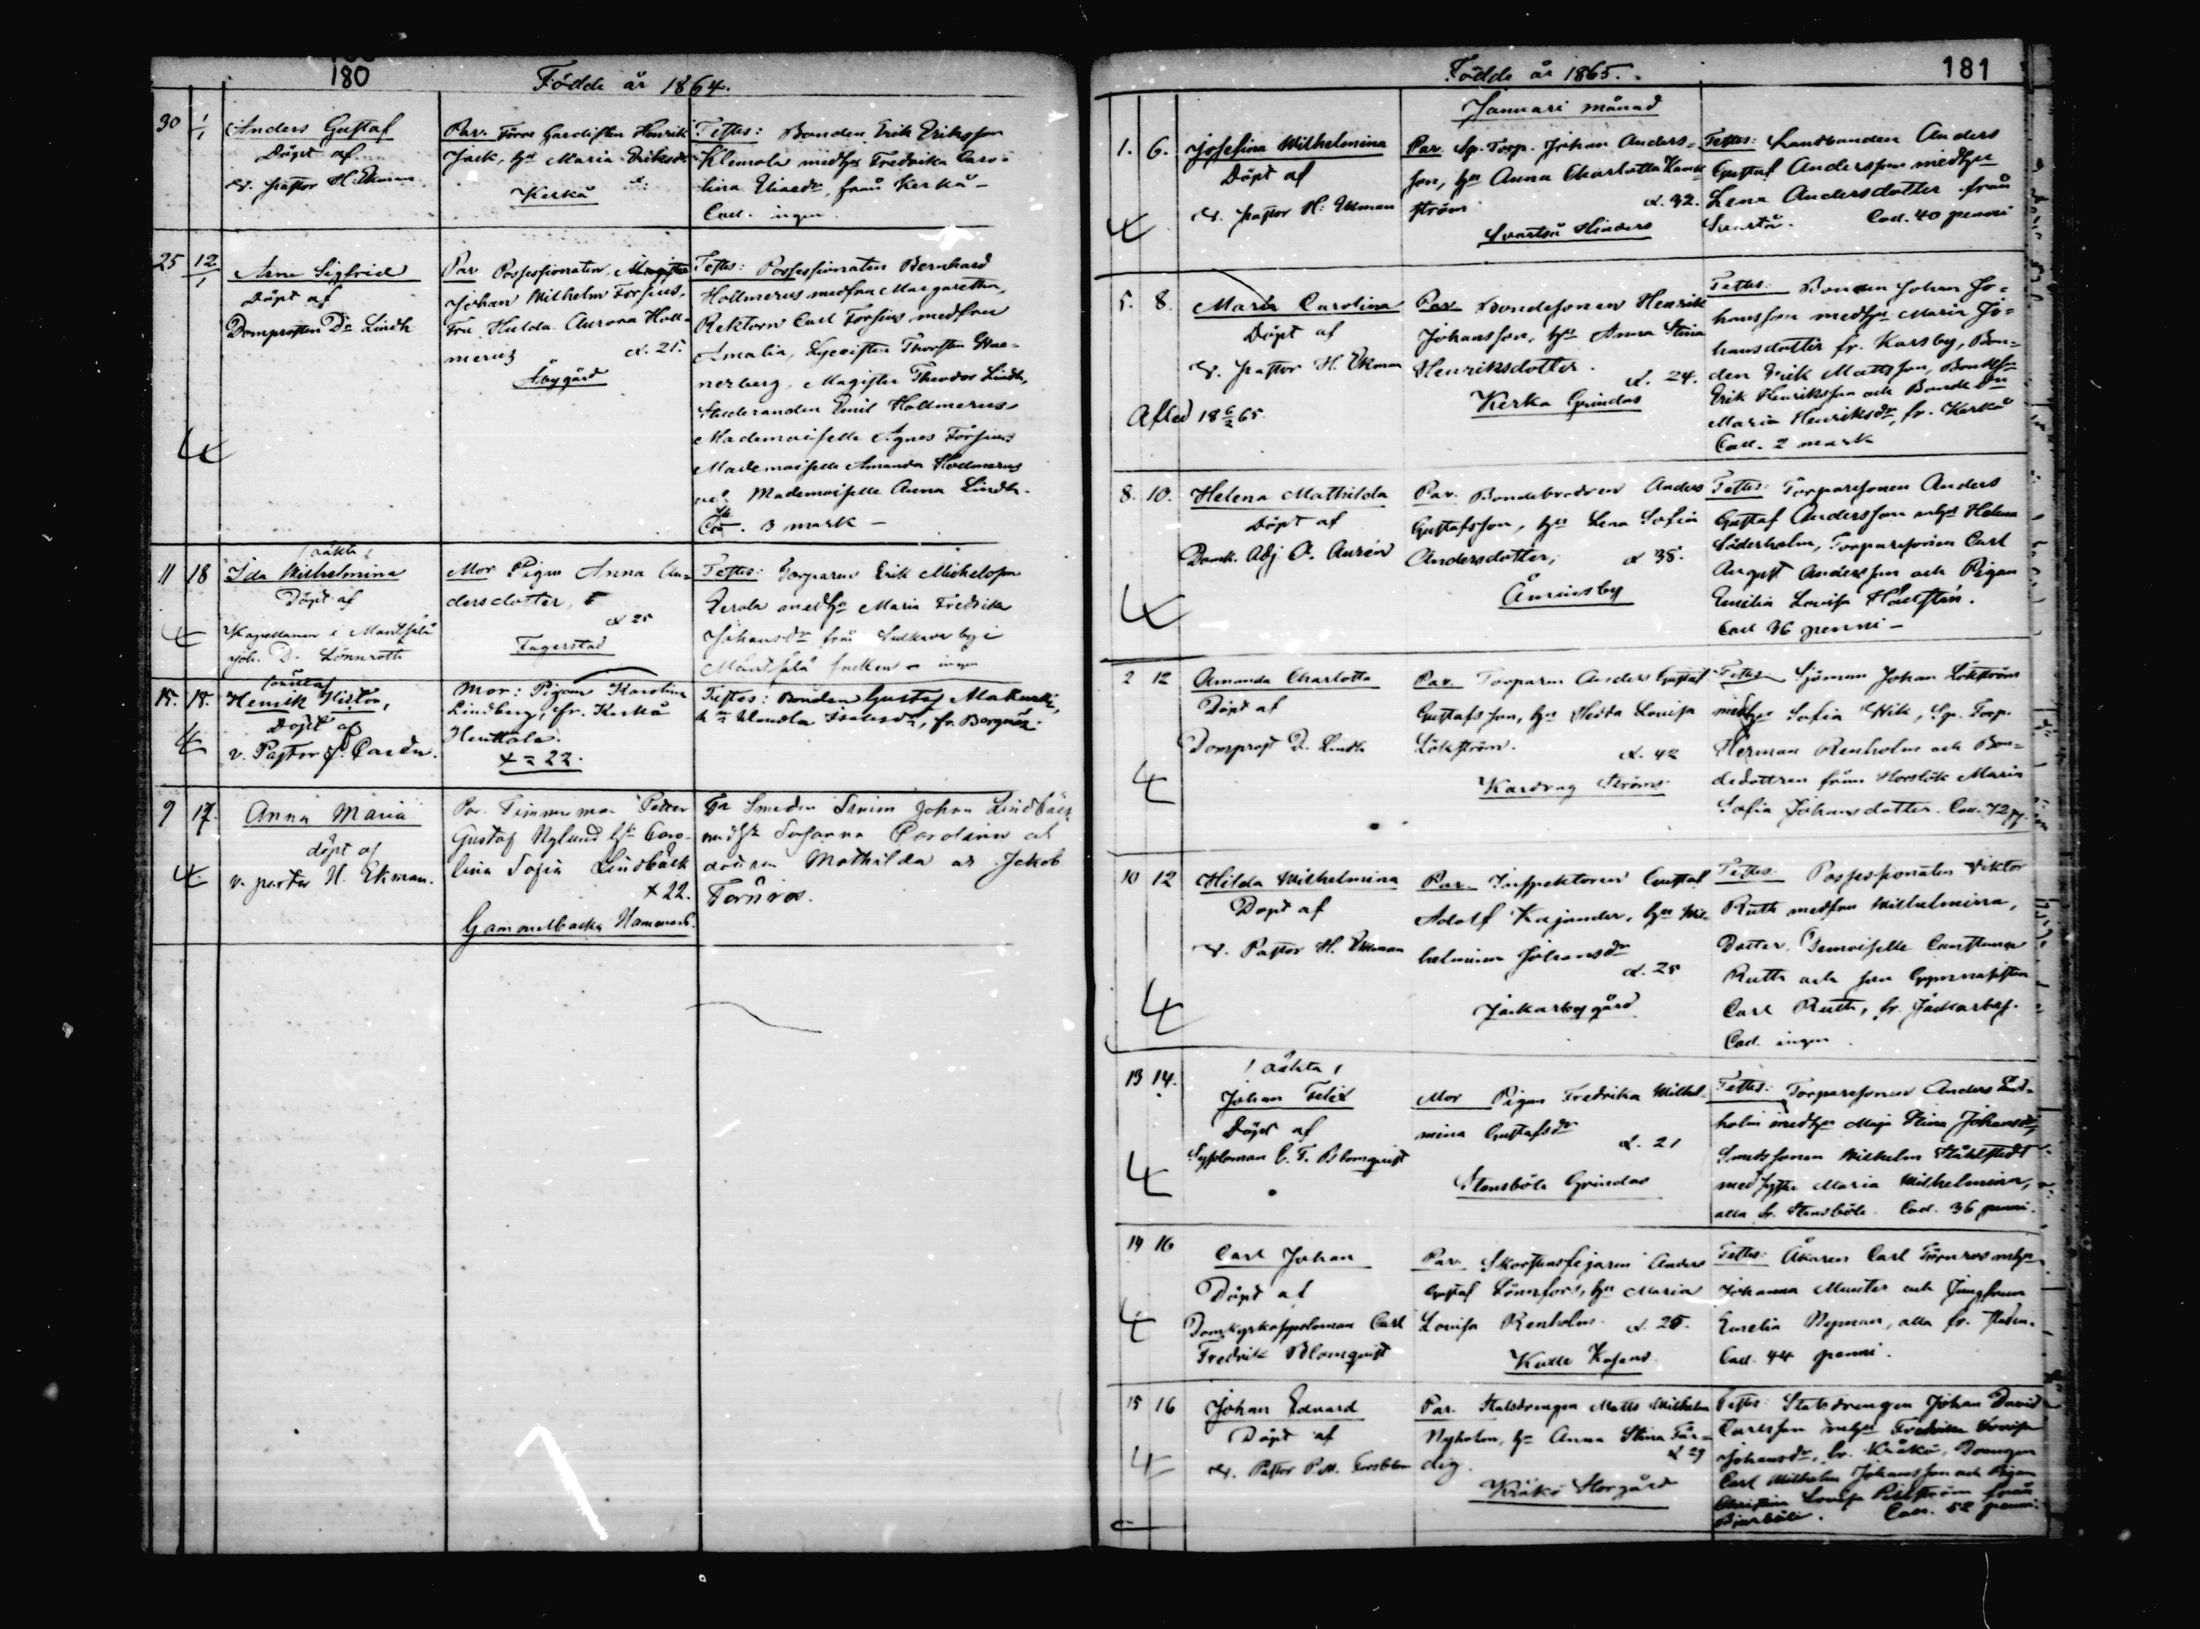 180
Födde år 1864.
30 1/1 Anders Gustaf
Döpt af
v. pastor H. Ekman
Par. Förre Gardisten Henrik
Jack, h:u Maria Eriksdr
Kerkå
Testes: Bonden Erik Eriksson
Klemola med h:u Fredrika Caro-
lina, från Kerkå
Coll. ingen
25 12/1 Arne Sigfried
Döpt af
Domprosten Dr Lindh
Par. Possessionaten, Magister
Johan Wilhelm Forsius,
Fru Hulda Aurora Holl-
merus æ. 21.
Åbygård
Testes: Possessionaten Bernhard
Hollmerus med fru Margaretha,
Rektorn Carl Forsius med fru
Amalia, Lyceisten Thorsten Wæ-
nerberg, Magister Theodor Lindh,
Studeranden Emil Hollmerus
Mademoiselle Agnes Forsius
Mademoiselle Amanda Hollmerus
och Mademoiselle Anna Lindh.
Coll. 3 mark —
11 18 /oäkta/
Ida Wilhelmina
Döpt af
Kapellanen i Mäntsälä
Joh. D. Lönnroth
Mor Pigan Anna An-
dersdotter,
æ 25
Fagerstad
Testes: Torparen Erik Michelsson
med h:u Maria Fredrika
Johansdr från by i
Mäntsälä ingen
15. 15. /oäkta/
Henrik
Döpt af
v. Pastor
Mor: Pigan Karolina
Lindberg, fr. Kerkå
Henttala.
æ = 22.
Testes: Bonden Gustaf
fr. Borgnäs.
9 17. Anna Maria
döpt af
v. pastor H. Ekman.
Par. Timmerman Petter
Gustaf Nylund h:u Caro-
lina Sofia Lindbäck
æ 22.
Gammelbacka
Smeden Johan Lindbäck
med h:u Susanna Carolina
Mathilda Jakob
Törnros.
181
Födde år 1865.
Januari månad
1. 6. Josefina Wilhelmina
Döpt af
v. pastor H. Ekman
Par. Sp. Torp. Johan Anders-
son, h:u Anna Charlotta
ström æ. 32.
Svartså Hinders
Testes: Landbonden Anders
Gustaf Andersson med h:u
Lena Andersdotter från
Svartså. Coll. 40 penni
5. 8. Maria Carolina
Döpt af
v. pastor H. Ekman
Afled 18 6/2 65
Par. Bondesonen Henrik
Johansson, h:u Anna Stina
Henriksdotter. æ. 24.
Kerko Grindas
Testes: Bonden Johan Jo-
hansson med h:u Maria Jo-
hansdotter fr. Karsby, Bon-
den Erik Mattsson, Bondes:
Erik Henriksson och Bonde Dr
Maria Henriksdr, fr. Kerkå
Coll. 2 mark
8. 10. Helena Mathilda
Döpt af
Domk. Adj. O. Aurén
Par. Bondebrodren Anders
Gustafsson, h:u Lena Sofia
Andersdotter, æ 38.
Åminsby
Testes: Torparsonen Anders
Gustaf Andersson m h:u Helena
Söderholm, Torparsonen Carl
August Andersson och Pigan
Emilia Lovisa
Coll 36 penni —
2 12 Amanda Charlotta
Döpt af
Domprost D. Lindh
Par. Torparen Anders Gustaf
Gustafsson, h:u Hedda Lovisa
Lökström. æ. 42
Kardrag Ströms
Testes Sjöman Johan Lökström
med h:u Sofia Wik, Sp. Torp.
Herman Renholm och Bon-
dedottren från Horslök Maria
Sofia Johansdotter. Coll. 72 p.
10 12 Hilda Wilhelmina
Döpt af
v. Pastor H. Ekman
Par. Inspektoren Gustaf
Adolf Kajander, h:u Wil-
helmina Johansdr
æ. 25
Jackarbygård
Testes: Possessionaten Viktor
Ruth med fru Wilhelmina,
Dotter, Demoiselle Constance
Ruth och son Gymnasisten
Carl Ruth, fr. Jackarby.
Coll. ingen.
13 14. /oäkta/
Johan Felix
Döpt af
Sysloman C. F. Blomqvist
Mor Pigan Fredrika Wilhel-
mina Gustafsdr
æ. 21
Stensböle Grindas
Testes: Torparsonen Anders Lind-
holm med h:u Maja Stina Johansdr,
Smedssonen Wilhelm Ståhlstedt
med syster Maria Wilhelmina,
alla fr. Stensböle. Coll. 36 penni.
14 16 Carl Johan
Döpt af
Domkyrkosysloman Carl
Fredrik Blomqvist
Par. Skorstensfejaren Anders
Gustaf Lönnfors, h:u Maria
Lovisa Renholm. æ. 25.
Testes: Åkaren Carl Törnros m h:u
Johanna Munster och Jungfrun
Emelia Nyman, alla fr. staden.
Coll. 44 penni.
15 16 Johan Edvard
Döpt af
v. Pastor
Par. Statsdrengen Matts Wilhelm
Nyholm, h:u Anna Stina Fär-
dig. æ 29
Kråkö Storgård
Testes: Statsdrengen Johan David
Carlsson m h:u Fredrika Lovisa
Johansdr, fr. Kråkö, Drengen
Carl Wilhelm Johansson och Pigan
Christina Lovisa från
Coll. 52 penni.